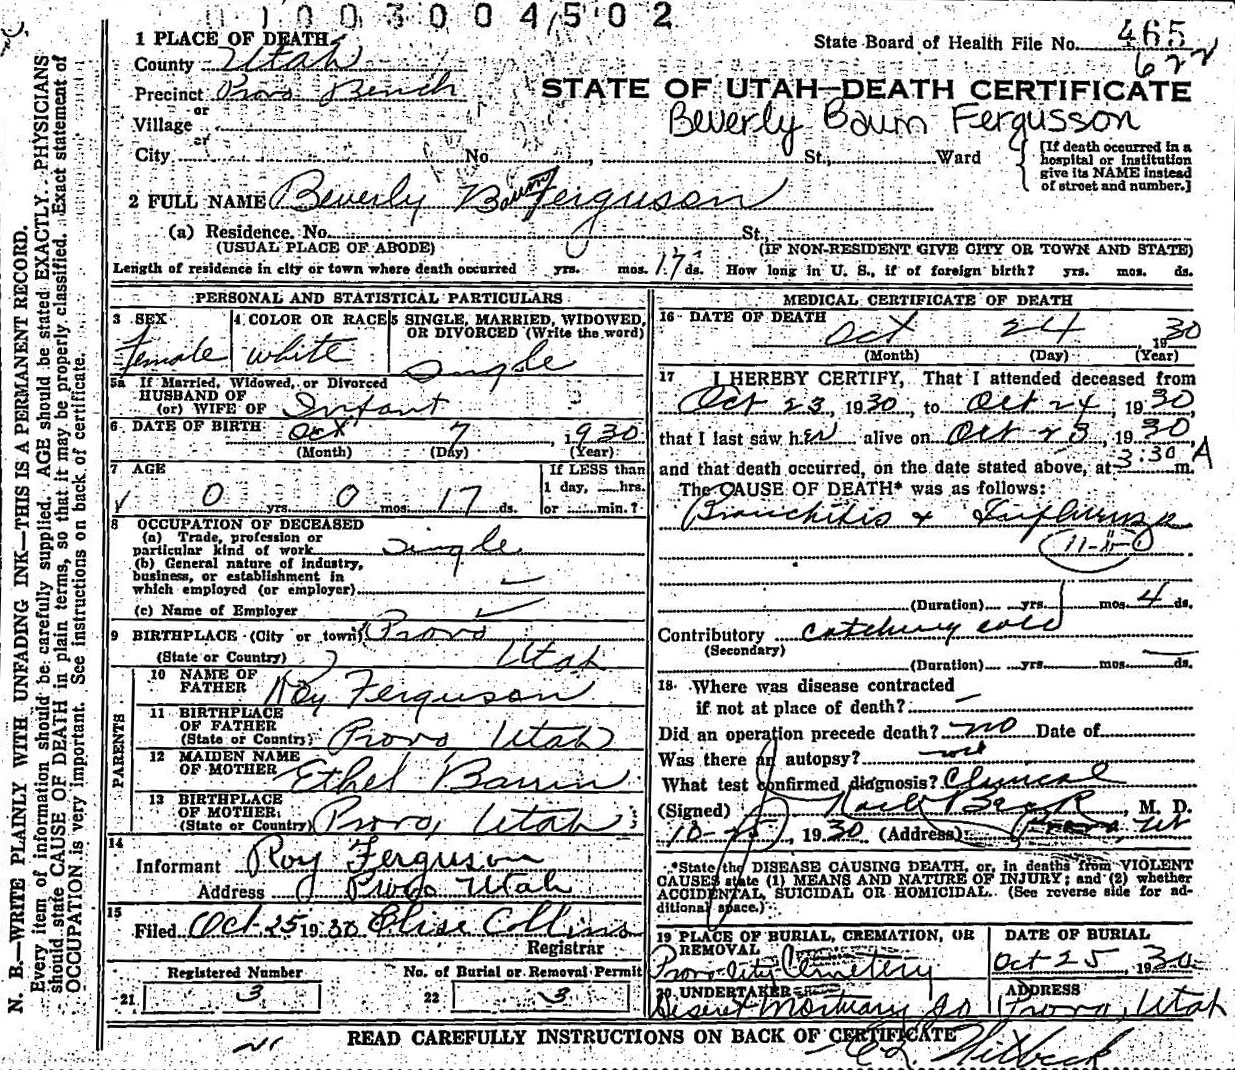 0 1 0 0 3 0 0 4 5 0 2
State Board of Health File No. 465
622
STATE OF UTAH—DEATH CERTIFICATE
Beverly Baum Fergusson
1 PLACE OF DEATH
County Utah
Precinct Provo Bench
or
Village
or
City No. , St., Ward
[If death occurred in a
hospital or institution
give its NAME instead
of street and number.]
2 FULL NAME Beverly Baum Ferguson
(a) Residence. No. St.
(USUAL PLACE OF ABODE) (IF NON-RESIDENT GIVE CITY OR TOWN AND STATE)
Length of residence in city or town where death occurred yrs. mos. 17 ds. How long in U. S., if of foreign birth? yrs. mos. ds.
PERSONAL AND STATISTICAL PARTICULARS
3 SEX
Female
4 COLOR OR RACE
white
5 SINGLE, MARRIED, WIDOWED,
OR DIVORCED (Write the word)
single
5a If Married, Widowed, or Divorced
HUSBAND OF
(or) WIFE OF Infant
6 DATE OF BIRTH Oct 7, 1930
(Month) (Day) (Year)
7 AGE
0 yrs. 0 mos. 17 ds.
If LESS than
1 day, hrs.
or min.?
8 OCCUPATION OF DECEASED
(a) Trade, profession or
particular kind of work single
(b) General nature of industry,
business, or establishment in
which employed (or employer)
(c) Name of Employer
9 BIRTHPLACE (City or town) Provo
(State or Country) Utah
PARENTS
10 NAME OF
FATHER Roy Ferguson
11 BIRTHPLACE
OF FATHER
(State or Country) Provo Utah
12 MAIDEN NAME
OF MOTHER Ethel Baum
13 BIRTHPLACE
OF MOTHER
(State or Country) Provo, Utah
14
Informant Roy Ferguson
Address Provo Utah
15
Filed Oct 25 1930 Elise Collins
Registrar
Registered Number
21 3
No. of Burial or Removal Permit
22 3
MEDICAL CERTIFICATE OF DEATH
16 DATE OF DEATH
Oct 24 1930
(Month) (Day) (Year)
17 I HEREBY CERTIFY, That I attended deceased from
Oct 23, 1930, to Oct 24, 1930,
that I last saw her alive on Oct 23, 1930,
and that death occurred, on the date stated above, at 3:30 A m.
The CAUSE OF DEATH* was as follows:
Bronchitis & Influenza
(Duration) yrs. mos. 4 ds.
Contributory catching cold
(Secondary)
(Duration) yrs. mos. ds.
18 Where was disease contracted
if not at place of death?
Did an operation precede death? no Date of
Was there an autopsy?
What test confirmed diagnosis? Clinical
(Signed) M. D.
10-25, 1930 (Address) Provo, Ut
*State the DISEASE CAUSING DEATH, or, in deaths from VIOLENT
CAUSES state (1) MEANS AND NATURE OF INJURY; and (2) whether
ACCIDENTAL, SUICIDAL OR HOMICIDAL. (See reverse side for ad-
ditional space.)
19 PLACE OF BURIAL, CREMATION, OR
REMOVAL
Provo City Cemetery
DATE OF BURIAL
Oct 25, 1930
20 UNDERTAKER
Deseret Mortuary Co
ADDRESS
Provo, Utah
READ CAREFULLY INSTRUCTIONS ON BACK OF CERTIFICATE
N. B.—WRITE PLAINLY WITH UNFADING INK—THIS IS A PERMANENT RECORD.
Every item of information should be carefully supplied. AGE should be stated EXACTLY. PHYSICIANS
should state CAUSE OF DEATH in plain terms, so that it may be properly classified. Exact statement of
OCCUPATION is very important. See instructions on back of certificate.